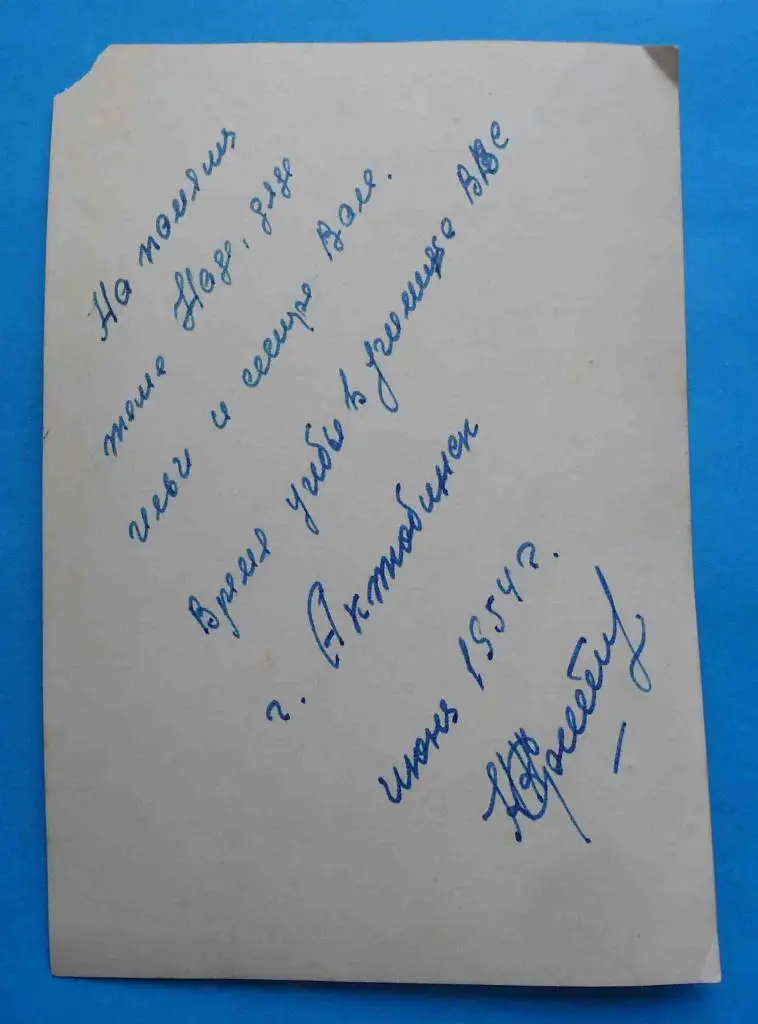 На память
тёте Наде, дяде
и сестре Вале.
Время учебы в училище ВВС
г. Актюбинск
июнь 1954 г.